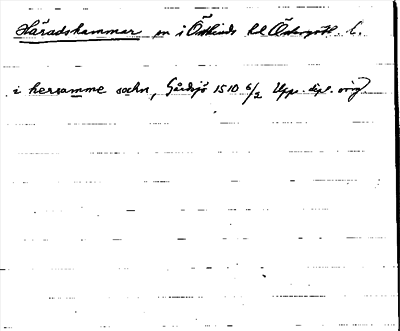 Häradshammar sn i Östkinds hd Östergötl. l.
i hersamme sochn, Gårdsjö 1510 6/2 Upps. dipl. orig.